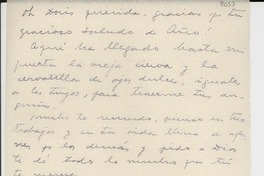 Oh Doris querida, gracias por tu
gracioso saludo de Año!
Aquí ha llegado hasta mi
puerta la vieja cierva y la
cervatilla de ojos dulces, iguales
a los tuyos, para traerme tus au-
gurios.
Mucho te recuerdo, pienso en tus
trabajos y en tu vida llena de afa-
nes por los demás y pido a Dios
te dé todo lo mucho que tú
te mereces